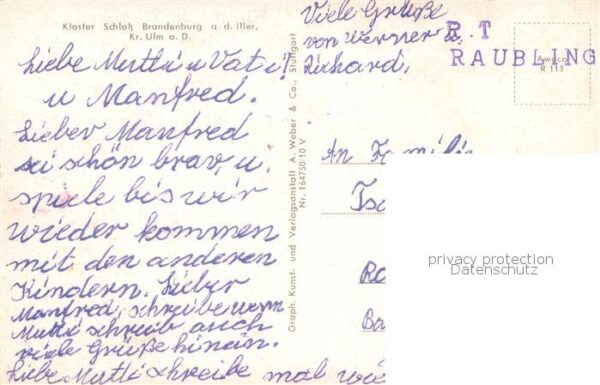 Kloster Schloß Brandenburg a. d. Iller,
Kr. Ulm a. D.
Liebe Mutti u Vati!
u Manfred.
Lieber Manfred
sei schön brav, u.
spiele bis wir
wieder kommen
mit den anderen
Kindern. Lieber
Manfred, schreibe wenn
Mutti schreib auch
viele Grüße hinein.
Liebe Mutti schreibe mal wie
Viele Grüße
von Werner u.
Richard.
Graph. Kunst- und Verlagsanstalt A. Weber & Co., Stuttgart
Nr. 164750 10 V
R T
RAUBLING
R 113
An Familie
privacy protection
Datenschutz